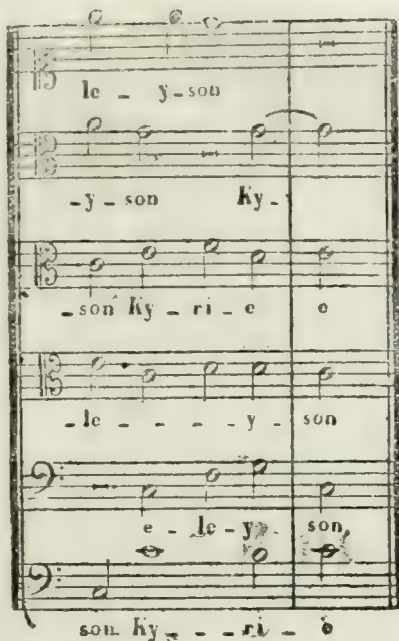 le - y-son
-y - son Ky-
-son Ky - ri - e e
-le - - - y - son
e - le-y- son
son Ky - - - ri - e